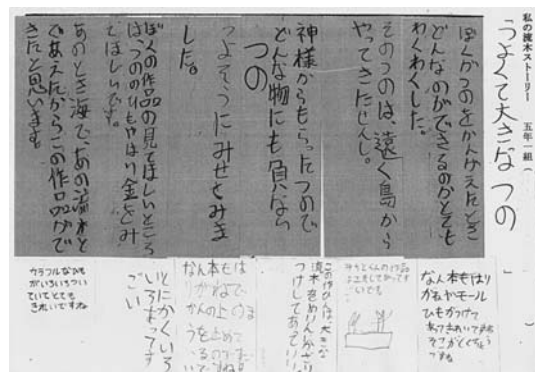 私の流木ストーリー 五年一組(
つよくて大きなつの
ぼくがつのをかんがえたとき
どんなのができるのかとても
わくわくした。
そのつのは、遠く島から
やってきたしんし。
神様からもらったつので
どんな物にも負けない
つの
つよそうにみせてみま
した。
ぼくの作品の見てほしいところ
はつののひもやはり金をみ
てほしいです。
あのとき海で、あの流木と
であえたからこの作品がで
きたと思います。
なん本もはり
がねやモール
ひもがつけて
あってきれいです
そこがとくちょう
ですね
この作ひんは、大きな
流木をめりんがざり
つけしてあって
なん本もは
りがねで
かんの上の
うをとめて
いるので
とにかくいろ
いろあってす
ごい
カラフルなひも
がいろいろつい
ていてとても
きれいですね